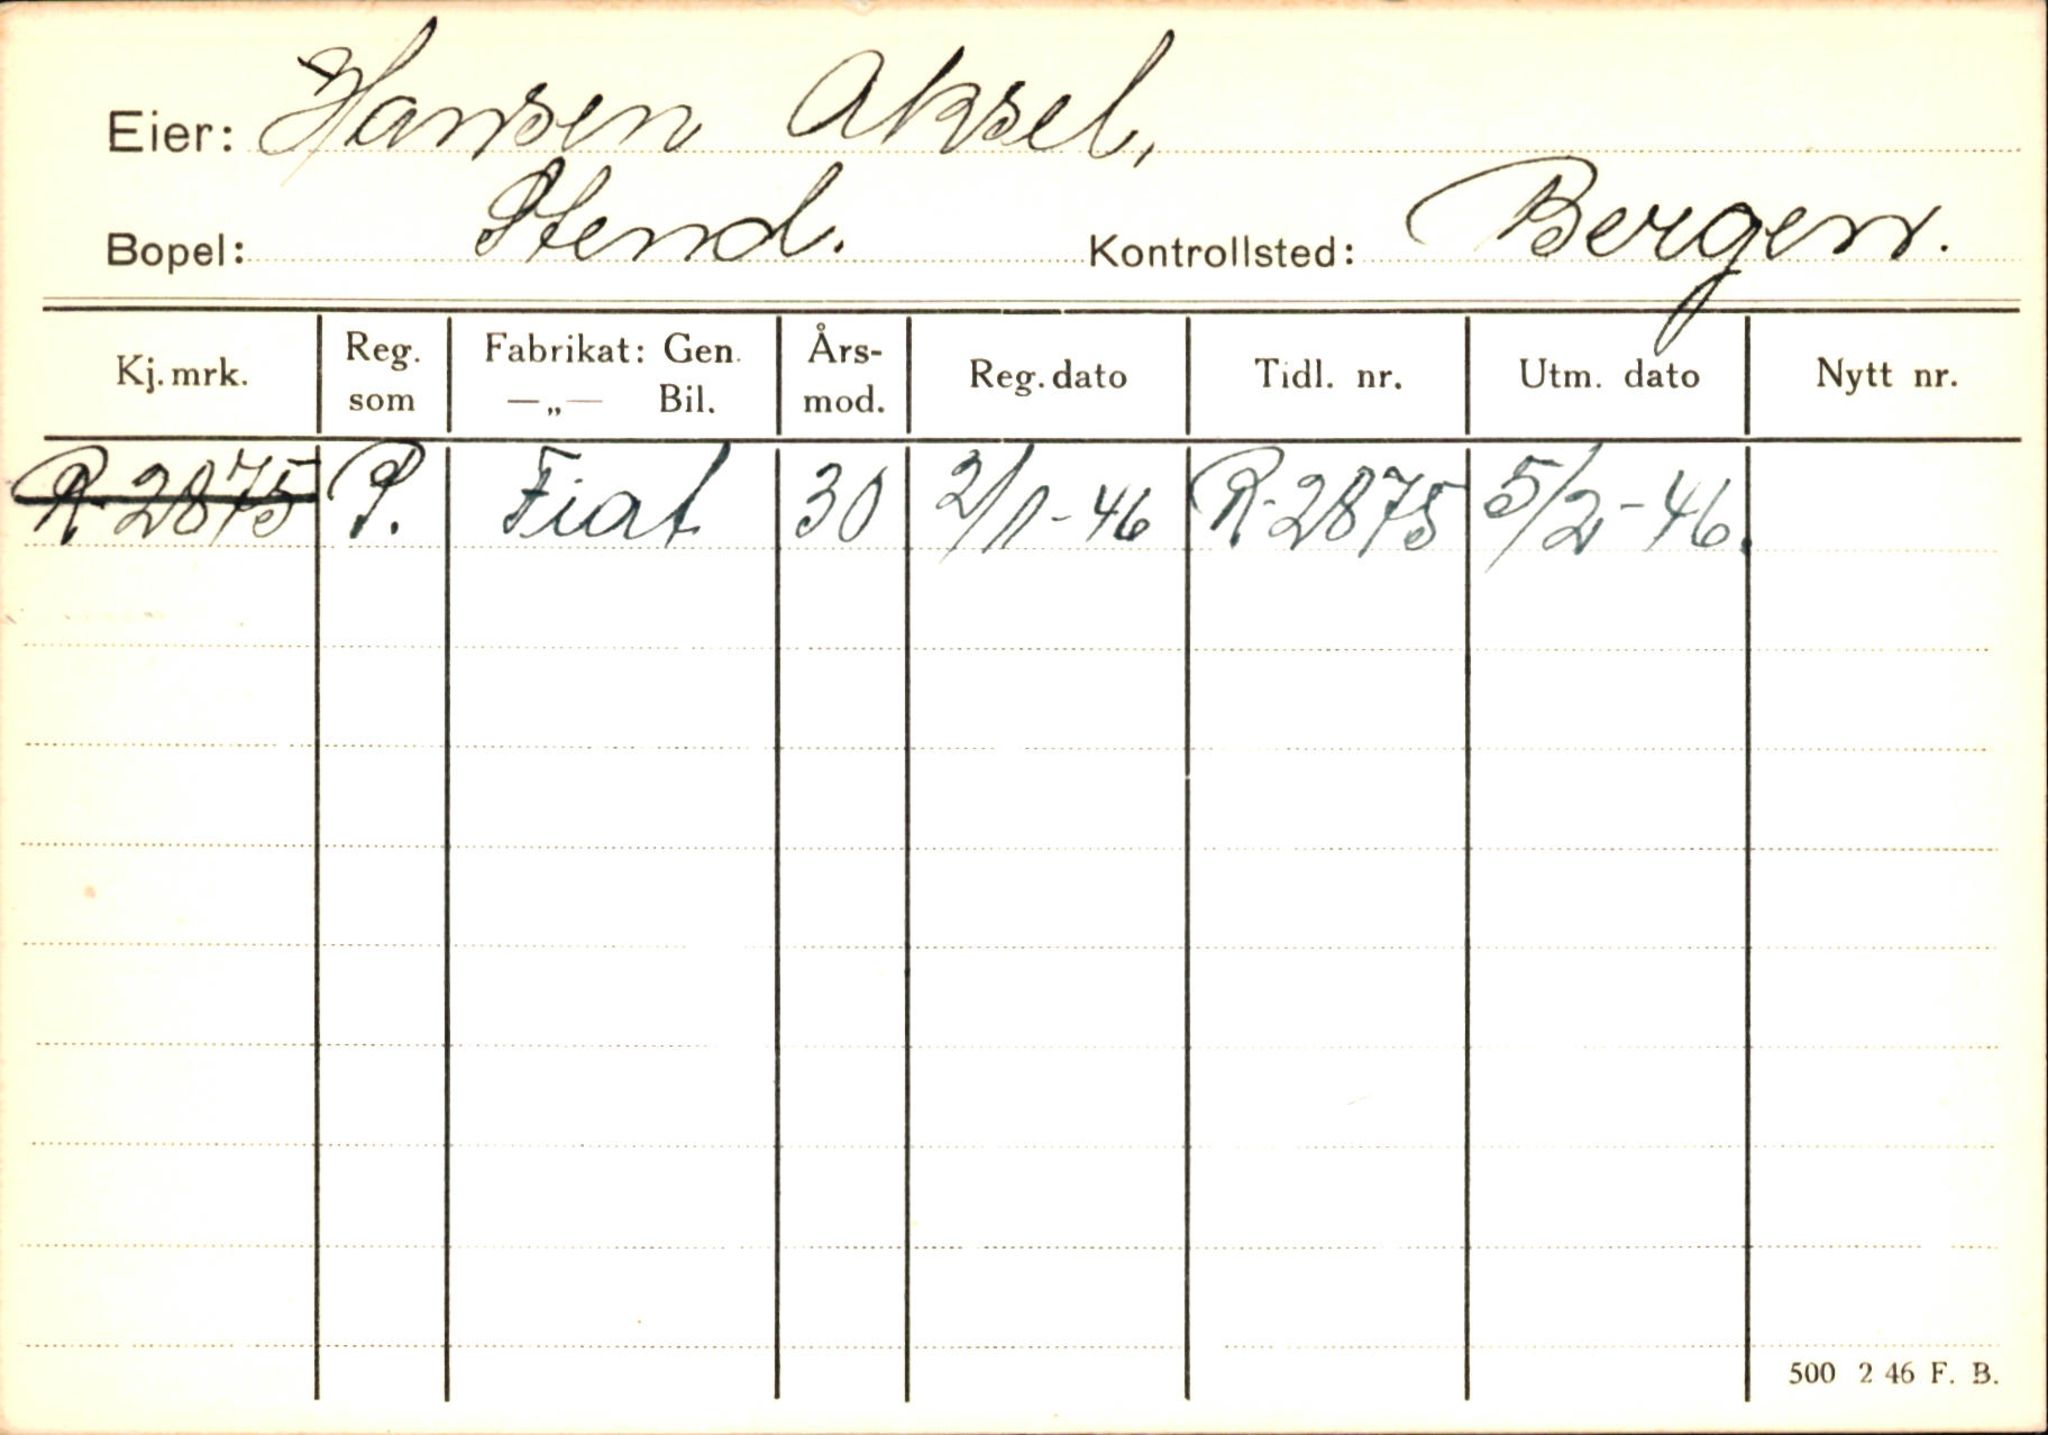 Eier: Hansen Aksel,
Bopel: Stend. Kontrollsted: Bergen.
Kj.mrk. Reg. som Fabrikat: Gen. —„— Bil. Års-mod. Reg. dato Tidl. nr. Utm. dato Nytt nr.
R-2875 P. Fiat 30 2/1-46 R-2875 5/2-46.
500 2 46 F. B.